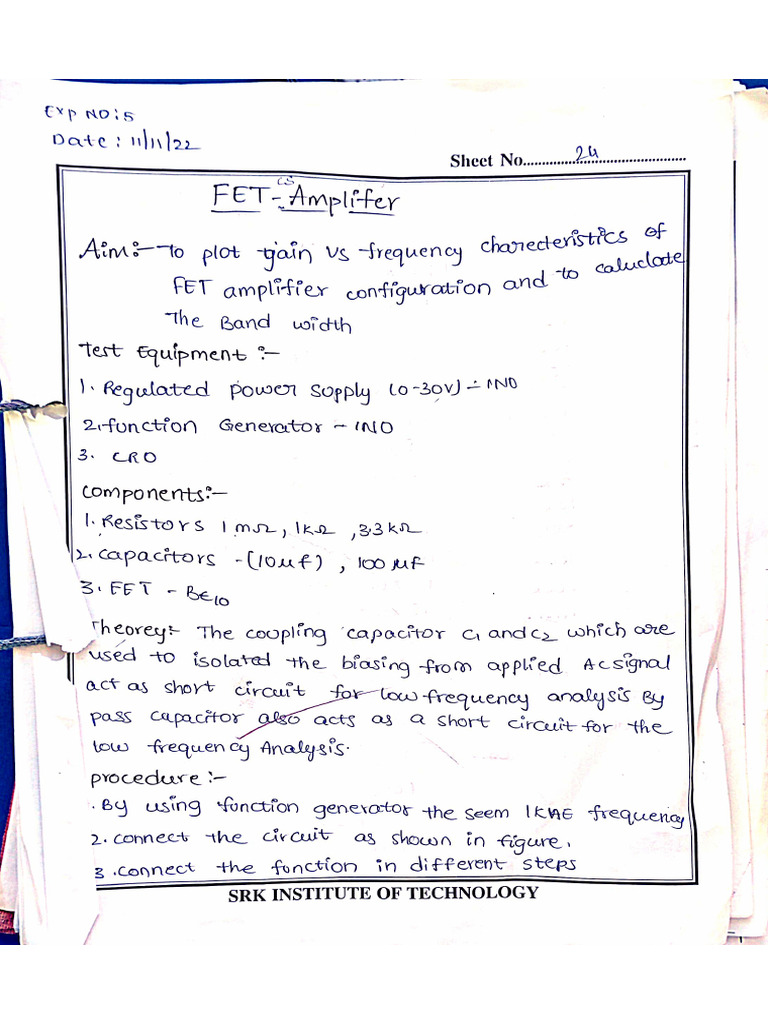 Exp NO: 5
Date: 11/11/22
Sheet No. 24
FET - CS Amplifer
Aim:- To plot gain vs frequency charecteristics of
FET amplifier configuration and to caluclate
The Band width
Test Equipment :-
1. Regulated power supply (0-30V) - 1NO
2. function Generator - 1NO
3. CRO
components:-
1. Resistors 1mΩ, 1kΩ, 3.3kΩ
2. capacitors - (10μf), 100μF
3. FET -
Theorey:- The coupling capacitor C1 and C2 which are
used to isolated the biasing from applied Ac signal
act as short circuit for low frequency analysis By
pass capacitor also acts as a short circuit for the
low frequency Analysis.
procedure :-
. By using function generator the seem frequency
2. connect the circuit as shown in figure.
3. connect the function in different steps
SRK INSTITUTE OF TECHNOLOGY